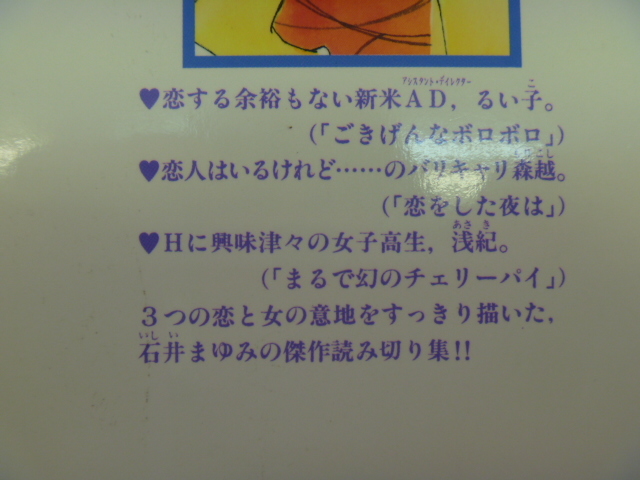 ♥恋する余裕もない新米AD，るい子。
(「ごきげんなボロボロ」)
♥恋人はいるけれど……のバリキャリ森越。
(「恋をした夜は」)
♥Hに興味津々の女子高生，浅紀。
(「まるで幻のチェリーパイ」)
3つの恋と女の意地をすっきり描いた，
石井まゆみの傑作読み切り集!!